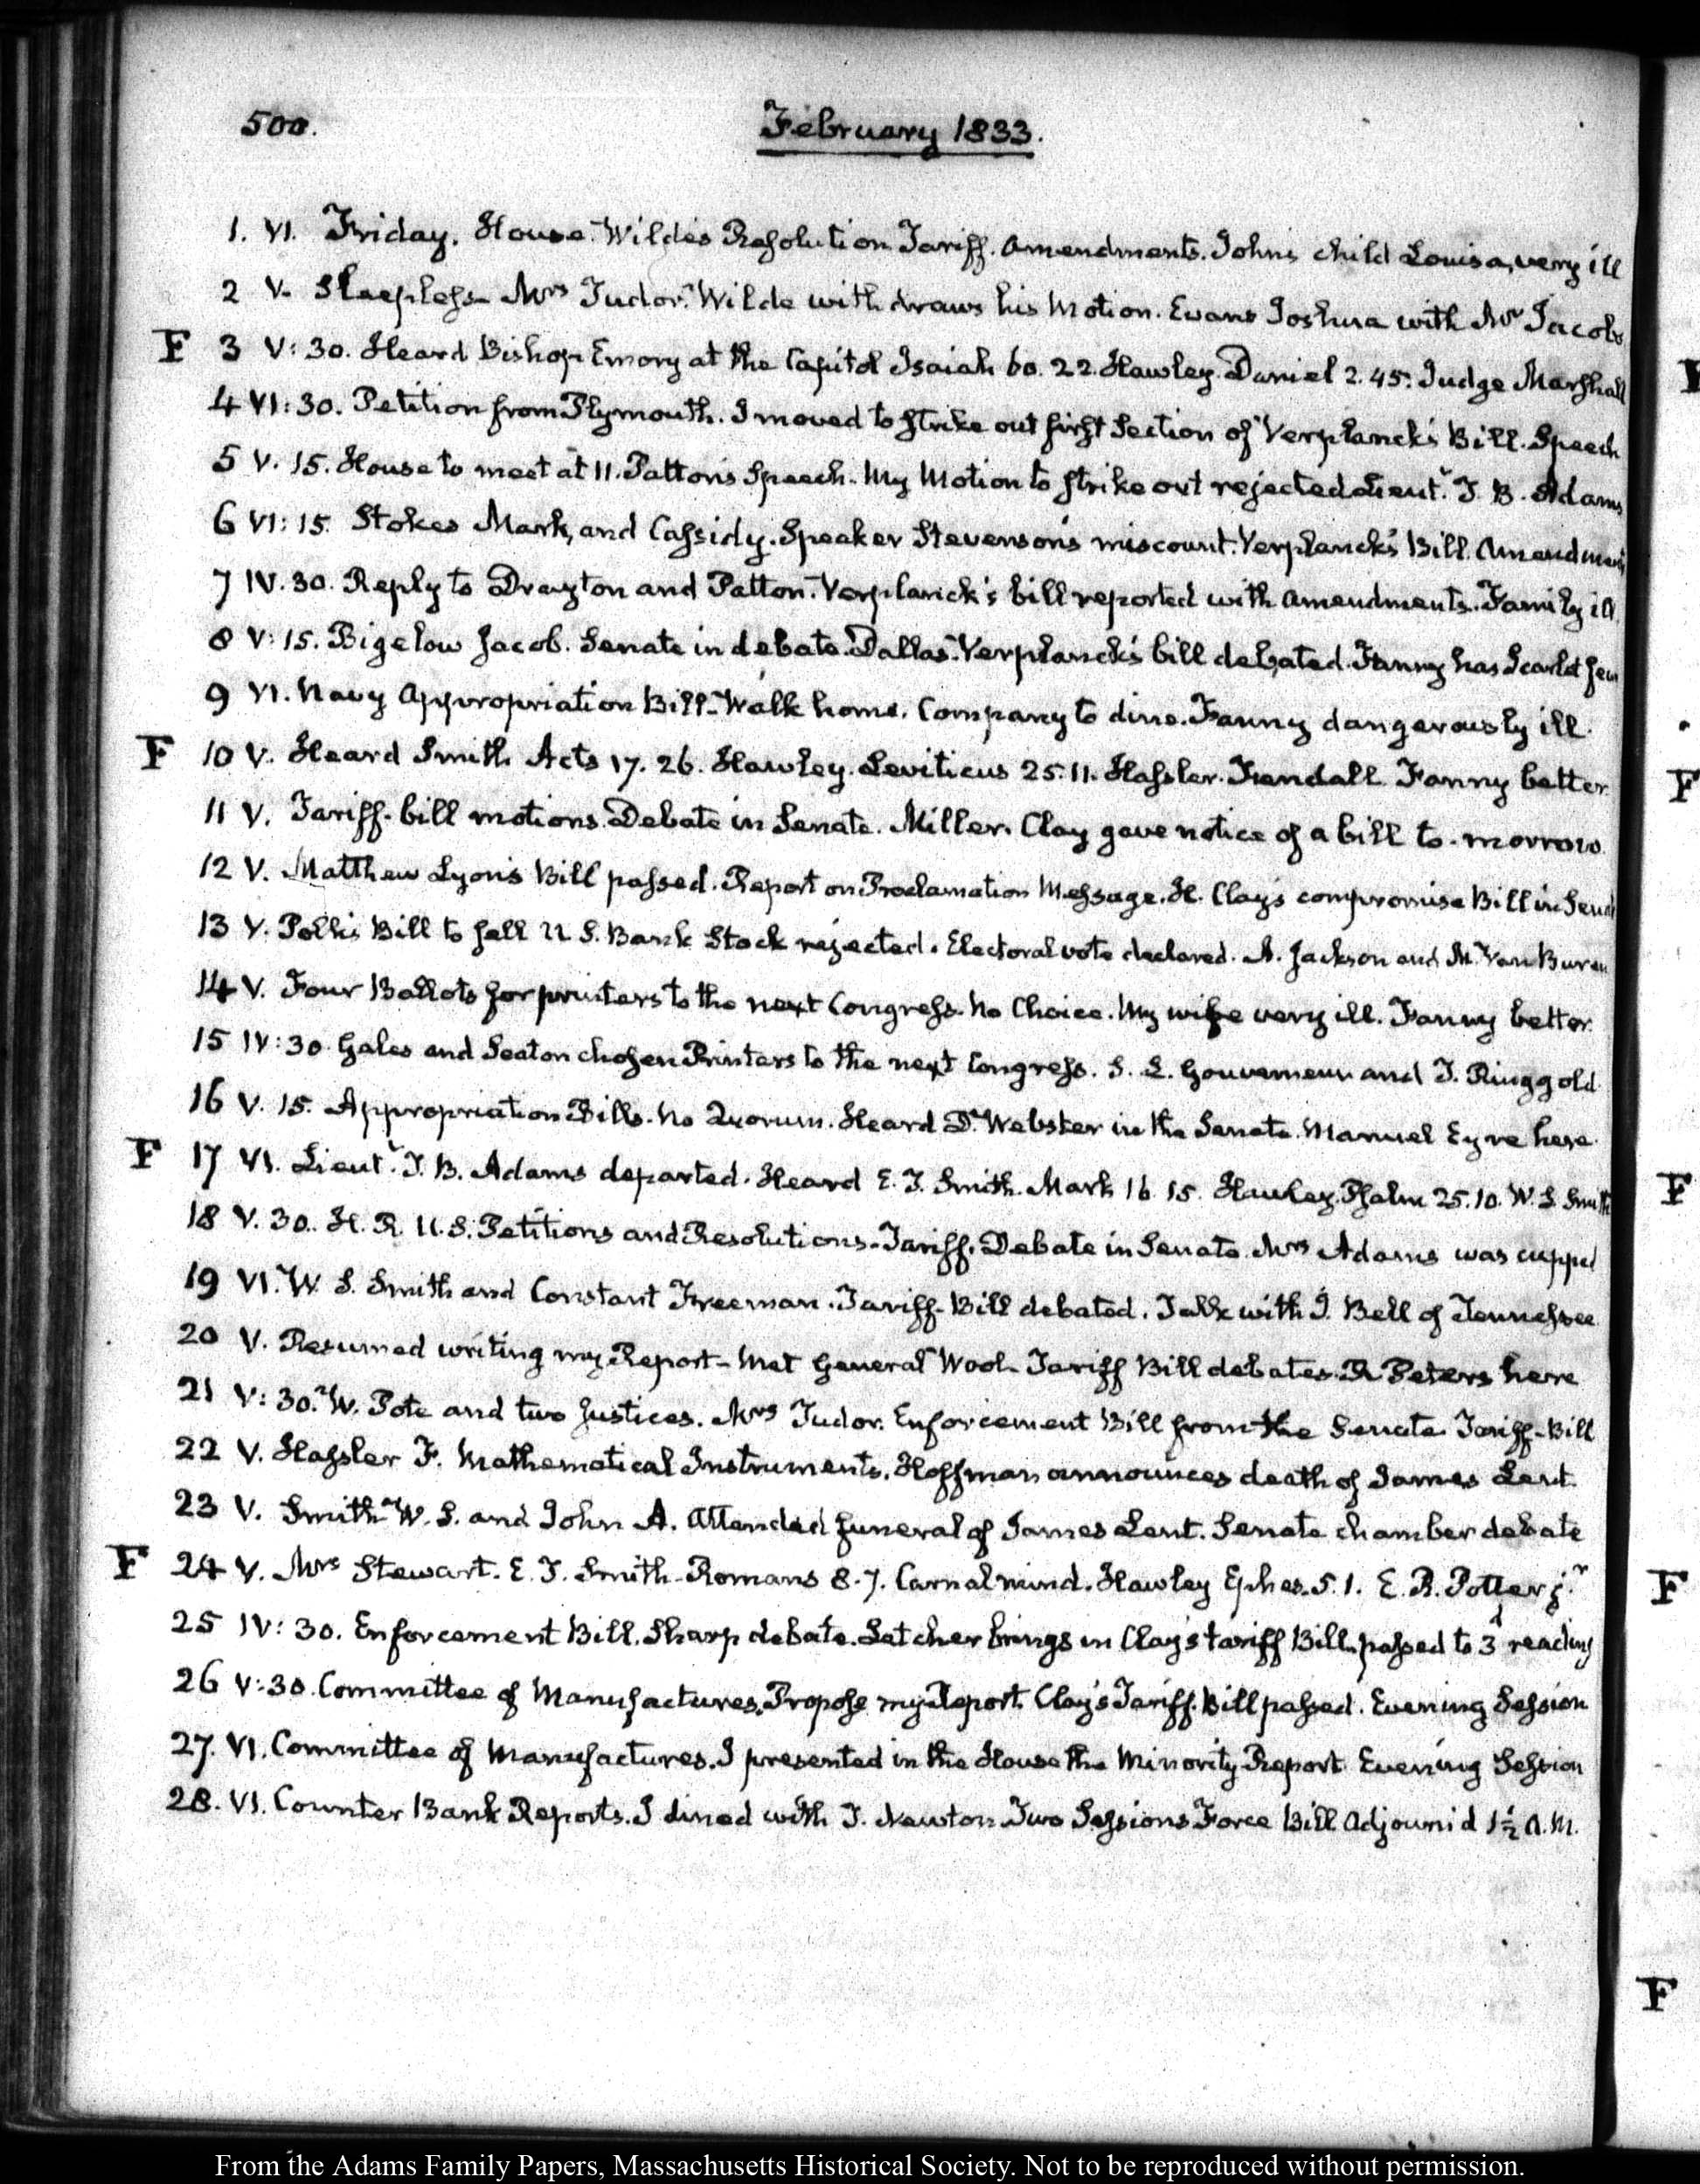 500.
February 1833.
1. VI. Friday. House. Wilde's Resolution Tariff. Amendments. John's child Louisa, very ill
2 V. Sleepless Mrs Tudor. Wilde withdraws his Motion. Evans Joshua with Mr Jacobs
F 3 V:30. Heard Bishop Emory at the Capitol Isaiah 60. 22. Hawley. Daniel 2. 45. Judge Marshall
4 VI:30. Petition from Plymouth. I moved to strike out first Section of Verplanck's Bill. Speech
5 V. 15. House to meet at 11. Patton's Speech. My Motion to strike out rejected. Lieut. T. B. Adams
6 VI:15. Stokes Mark, and Cassidy. Speaker Stevenson's miscount. Verplanck's Bill. Amendment
7 IV.30. Reply to Drayton and Patton. Verplanck's bill reported with amendments. Family ill
8 V:15. Bigelow Jacob. Senate in debate. Dallas. Verplanck's bill debated. Fanny has Scarlet fev
9 VI. Navy Appropriation Bill. Walk home. Company to dine. Fanny dangerously ill.
F 10 V. Heard Smith Acts 17. 26. Hawley. Leviticus 25.11. Hassler. Kendall Fanny better
11 V. Tariff-bill motions. Debate in Senate. Miller. Clay gave notice of a bill to-morrow
12 V. Matthew Lyon's Bill passed. Report on Proclamation Message. H. Clay's compromise Bill in Senate
13 V. Polk's Bill to sell U. S. Bank Stock rejected. Electoral vote declared. A. Jackson and M. Van Buren
14 V. Four Ballots for printers to the next Congress. No Choice. My wife very ill. Fanny better.
15 IV:30 Gales and Seaton chosen Printers to the next Congress. S. L. Gouverneur and T. Ringgold
16 V. 15. Appropriation Bills. No Quorum. Heard D. Webster in the Senate. Manuel Eyre here.
F 17 VI. Lieut. T. B. Adams departed. Heard E. T. Smith. Mark 16. 15. Hawley. Psalm 25.10. W. S. Smith
18 V. 30. H. R. U.S. Petitions and Resolutions. Tariff. Debate in Senate. Mrs Adams was cupped
19 VI. W. S. Smith and Constant Freeman. Tariff-Bill debated. Talk with J. Bell of Tennessee
20 V. Resumed writing my Report. Met General Wool. Tariff Bill debates. R Peters here
21 V:30. W. Pote and two Justices. Mrs Tudor. Enforcement Bill from the Senate. Tariff-Bill
22 V. Hassler F. Mathematical Instruments. Hoffman announces death of James Lent.
23 V. Smith W. S. and John A. Attended funeral of James Lent. Senate chamber debate
F 24 V. Mrs Stewart. E. T. Smith. Romans 8. 7. Carnal mind. Hawley Ephes. 5. 1. E. R. Potter jr
25 IV:30. Enforcement Bill. Sharp debate. Letcher brings in Clay's tariff Bill. passed to 3d reading
26 V:30. Committee of Manufactures. Propose my Report. Clay's Tariff-Bill passed. Evening Session
27. VI. Committee of Manufactures. I presented in the House the Minority Report Evening Session
28. VI. Counter Bank Reports. I dined with T. Newton. Two Sessions Force Bill Adjourn'd 1½ A.M.
F
F
F
F
From the Adams Family Papers, Massachusetts Historical Society. Not to be reproduced without permission.